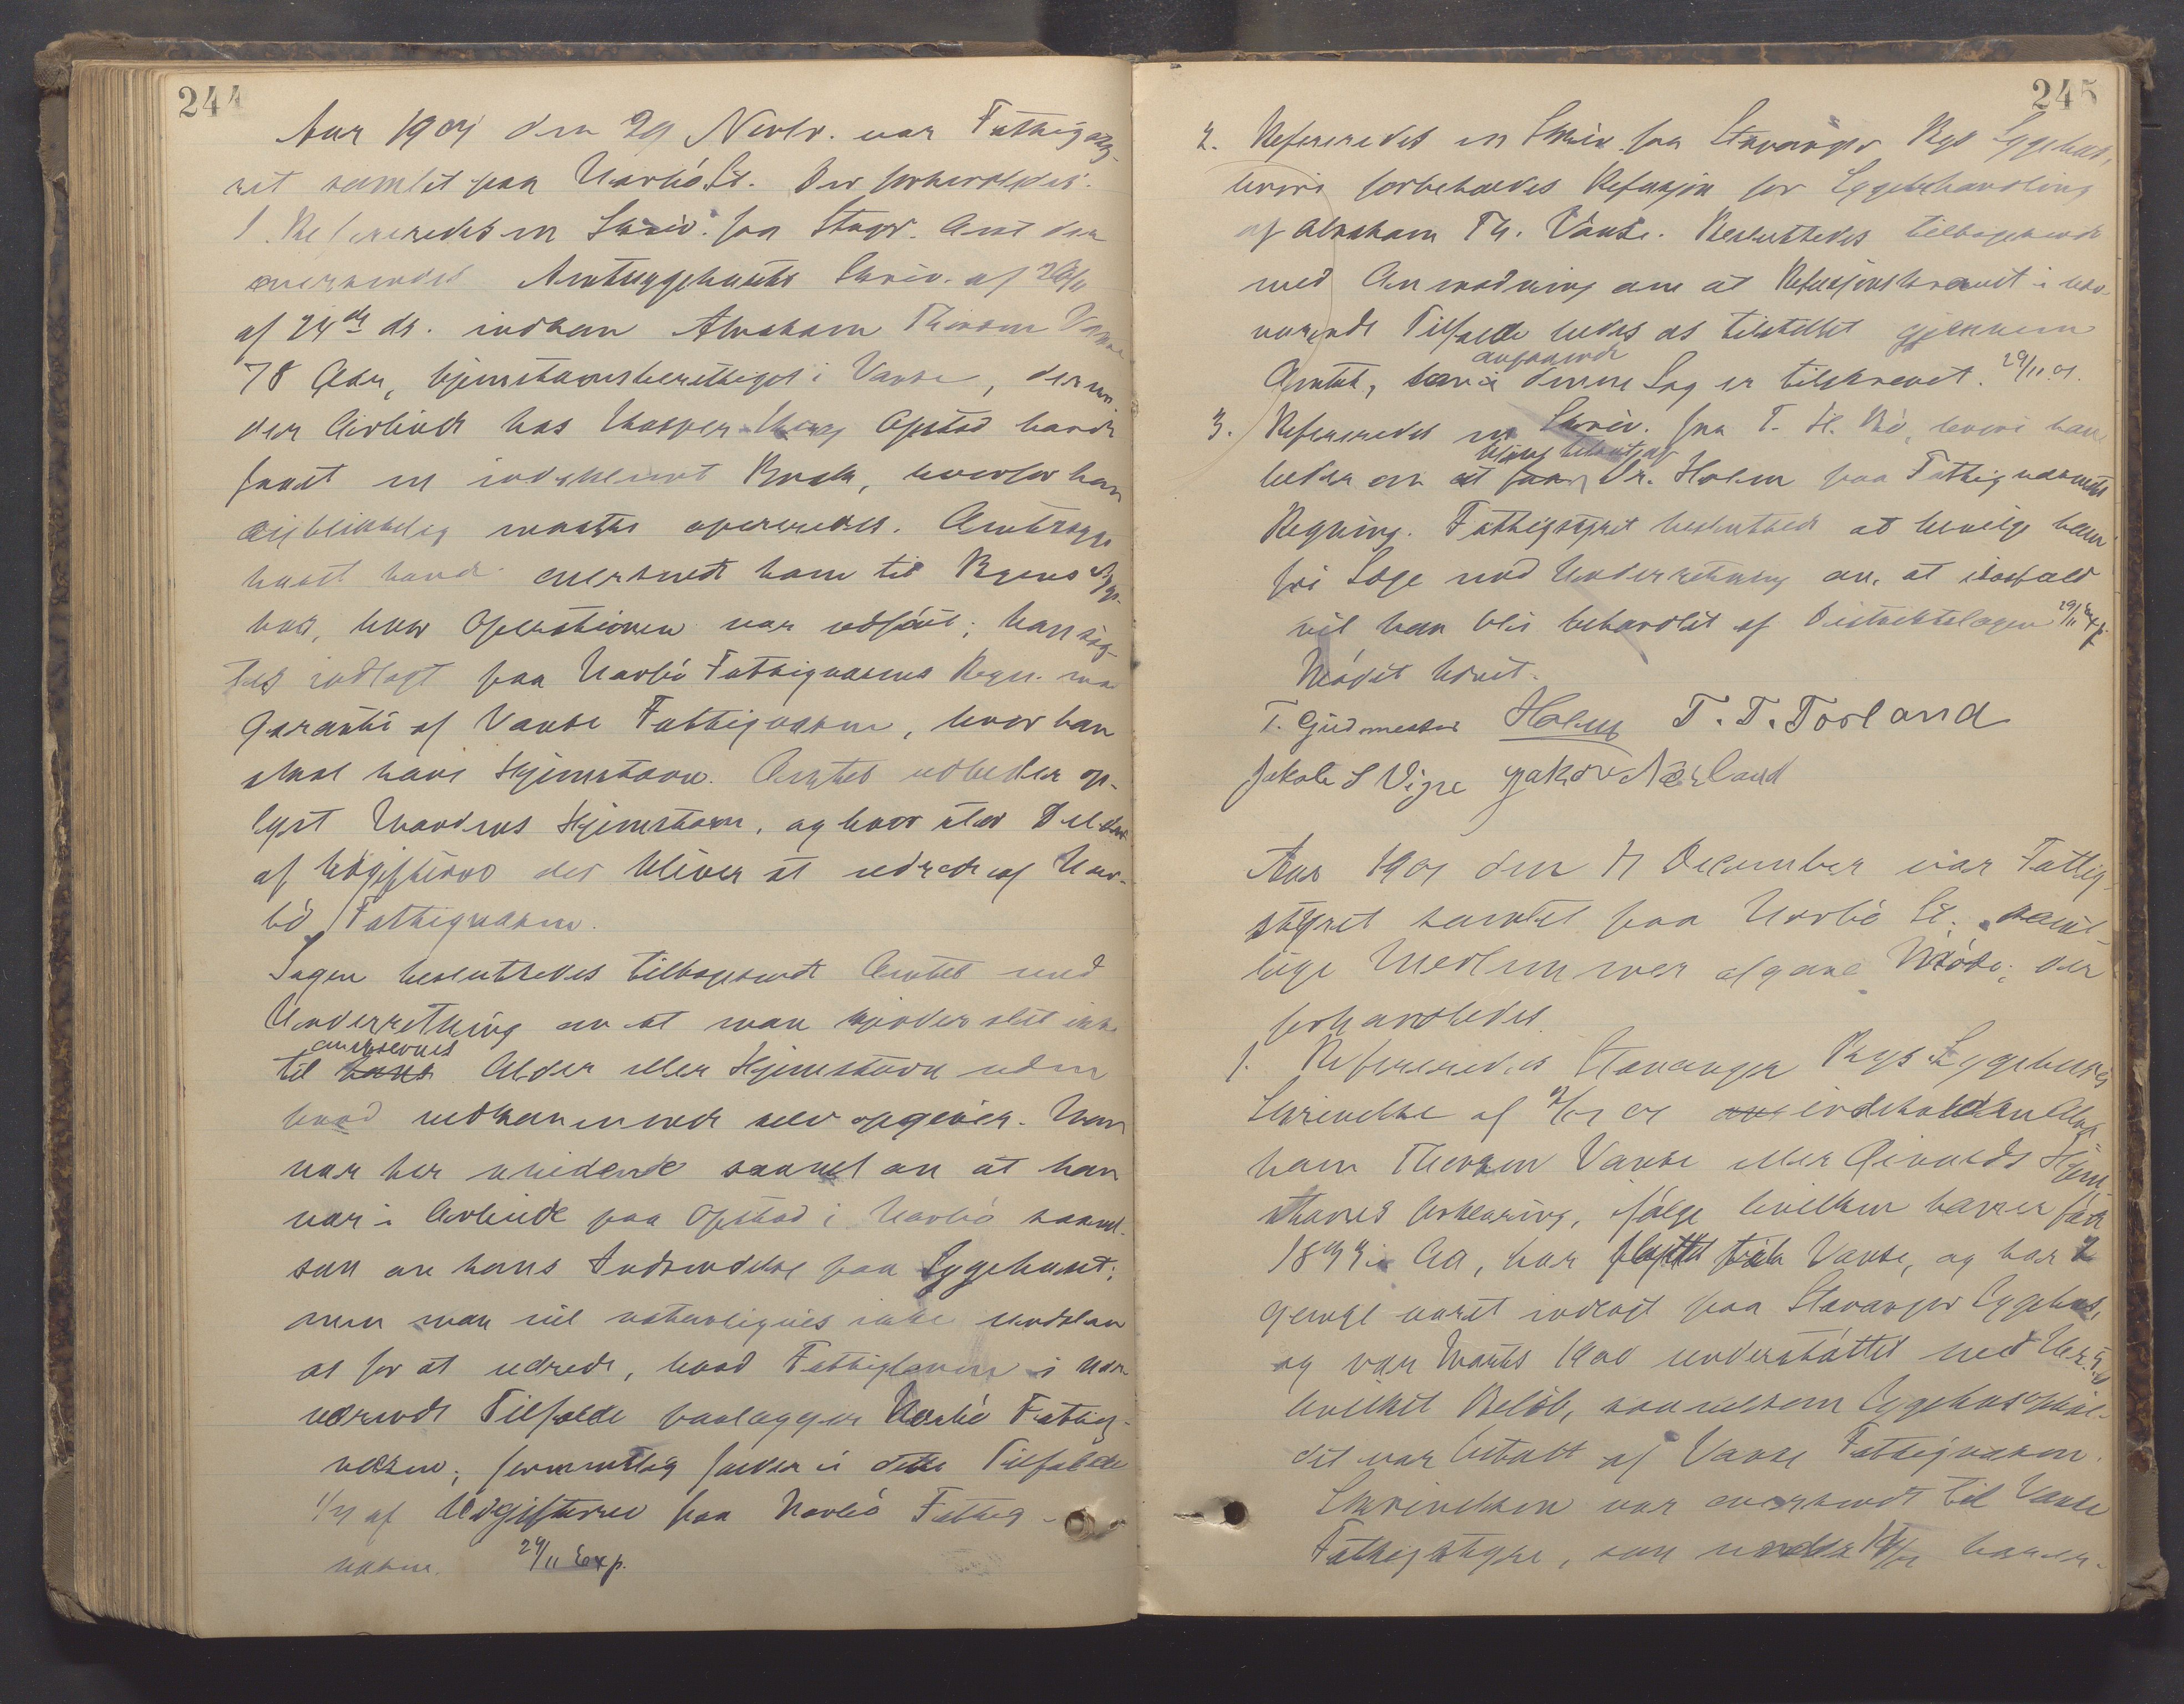 244
Aar 1901 den 29 Novbr. var Fattigsty-
ret samlet paa Narbö St. Der forhandledes:
1. Refereredes en Skriv. fra Stavgr. Amt der
oversendes Amtssygehusets Skriv. af 26/11
af 24de ds. indkom Abraham Thorsen Vanse
78 Aar, hjemstavnsberettiget i Vanse, der un
der Arbeide hos Kasper Opstad havde
faaet en indeklemt Brok, hvorfor han
øieblikkelig maatte opereredes. Amtssyge
huset havde oversendt ham til Byens Syge-
hus, hvor Operationen var udført; han sög-
tes indlagt paa Narbö Fattigvæsens Regn. mod
Garanti af Vanse Fattigvæsen, hvor han
skal have Hjemstavn. Amtet udbeder op-
lyst Mandens Hjemstavn, og hvor stor Del
af Udgifterne der bliver at udrede af Nar-
bö Fattigvæsen.
Sagen besluttedes tilbagesendt Amtet med
Underretning om at man kjender slet ikke
angjældendes
til hans Alder eller Hjemstavn uden
hvad vedkommende selv opgiver. Man
var her uvidende saavel om at han
var i Arbeide paa Opstad i Narbö saavel-
som om hans Indsendelse paa Sygehuset;
men man vil naturligvis ikke undslaa
os for at udrede, hvad Fattigloven i nær-
værende Tilfælde paalægger Narbö Fattig-
væsen; formentlig falder i dette Tilfælde
1/4 af Udgifterne paa Narbö Fattig-
væsen. 29/11 Exp.
245
2. Refereredes en Skriv. fra Stavanger Bys Sygehus,
hvori forbeholdes Refusjon for Sygebehandling
af Abraham Th. Vanse. Besluttedes tilbagesendt
med Anmodning om at Refusjonskravet i nær-
værende Tilfælde bedes os tilstillet gjennem
angaaende
Amtet, som i denne Sag er tilskrevet. 29/11 01.
3. Refereredes en Skriv. fra T. H. Bö, hvori han
beder om at faa Dr. Holm paa Fattigvæsenets
Regning. Fattigstyret besluttede at bevilge ham
fri Læge med Underretning om, at isaafald
vil han bli behandlet af Distriktslægen 29/11 Exp.
Mödet hævet.
T. Gudmestad Holm T. T. Torland
Jakob S Vigre Jakob Nærland
Aar 1901 den 11 December var Fattig-
styret samlet paa Narbö St. samt-
lige Medlemmer afgave Möde; der
forhandledes.
1. Refereredes Stavanger Bys Sygehuses
Skrivelse af indeholden Abra
ham Thorsen Vanse eller Hjem-
stavns Erklæring, ifølge hvilken han er född
i Aa, har flyttet fra Vanse, og har 2
Gange været indlagt paa Stavanger Sygehus,
og var Marts 1900 understöttet med Kr.
hvilket Belöb, saavelsom Sygehusophol-
det var betalt af Vanse Fattigvæsen.
Skrivelsen var oversendt til Vanse
Fattigstyre, som under